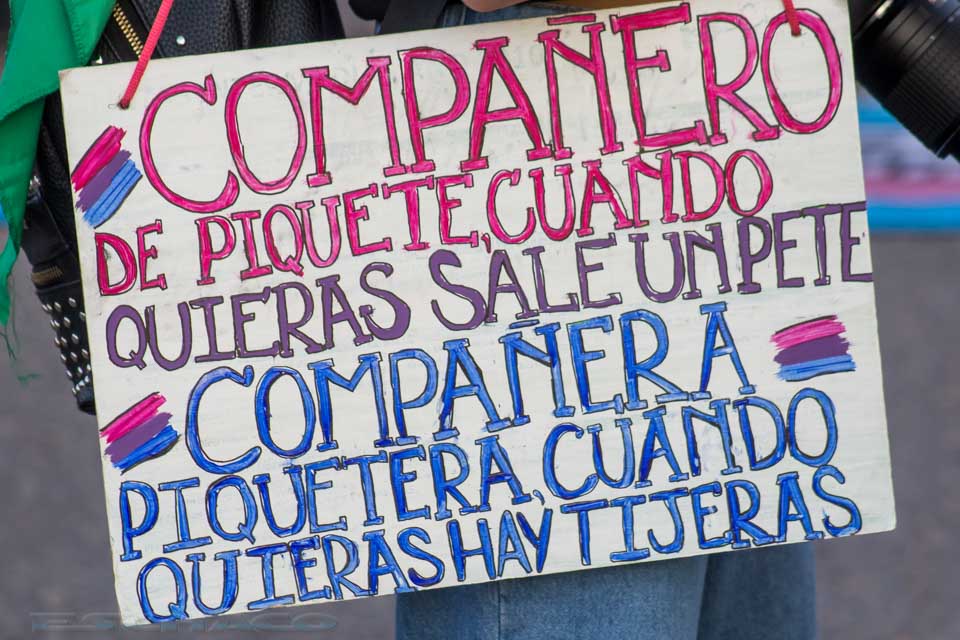 COMPAÑERO
DE PIQUETE, CUANDO
QUIERAS SALE UN PETE
COMPAÑERA
PIQUETERA, CUANDO
QUIERAS HAY TIJERAS